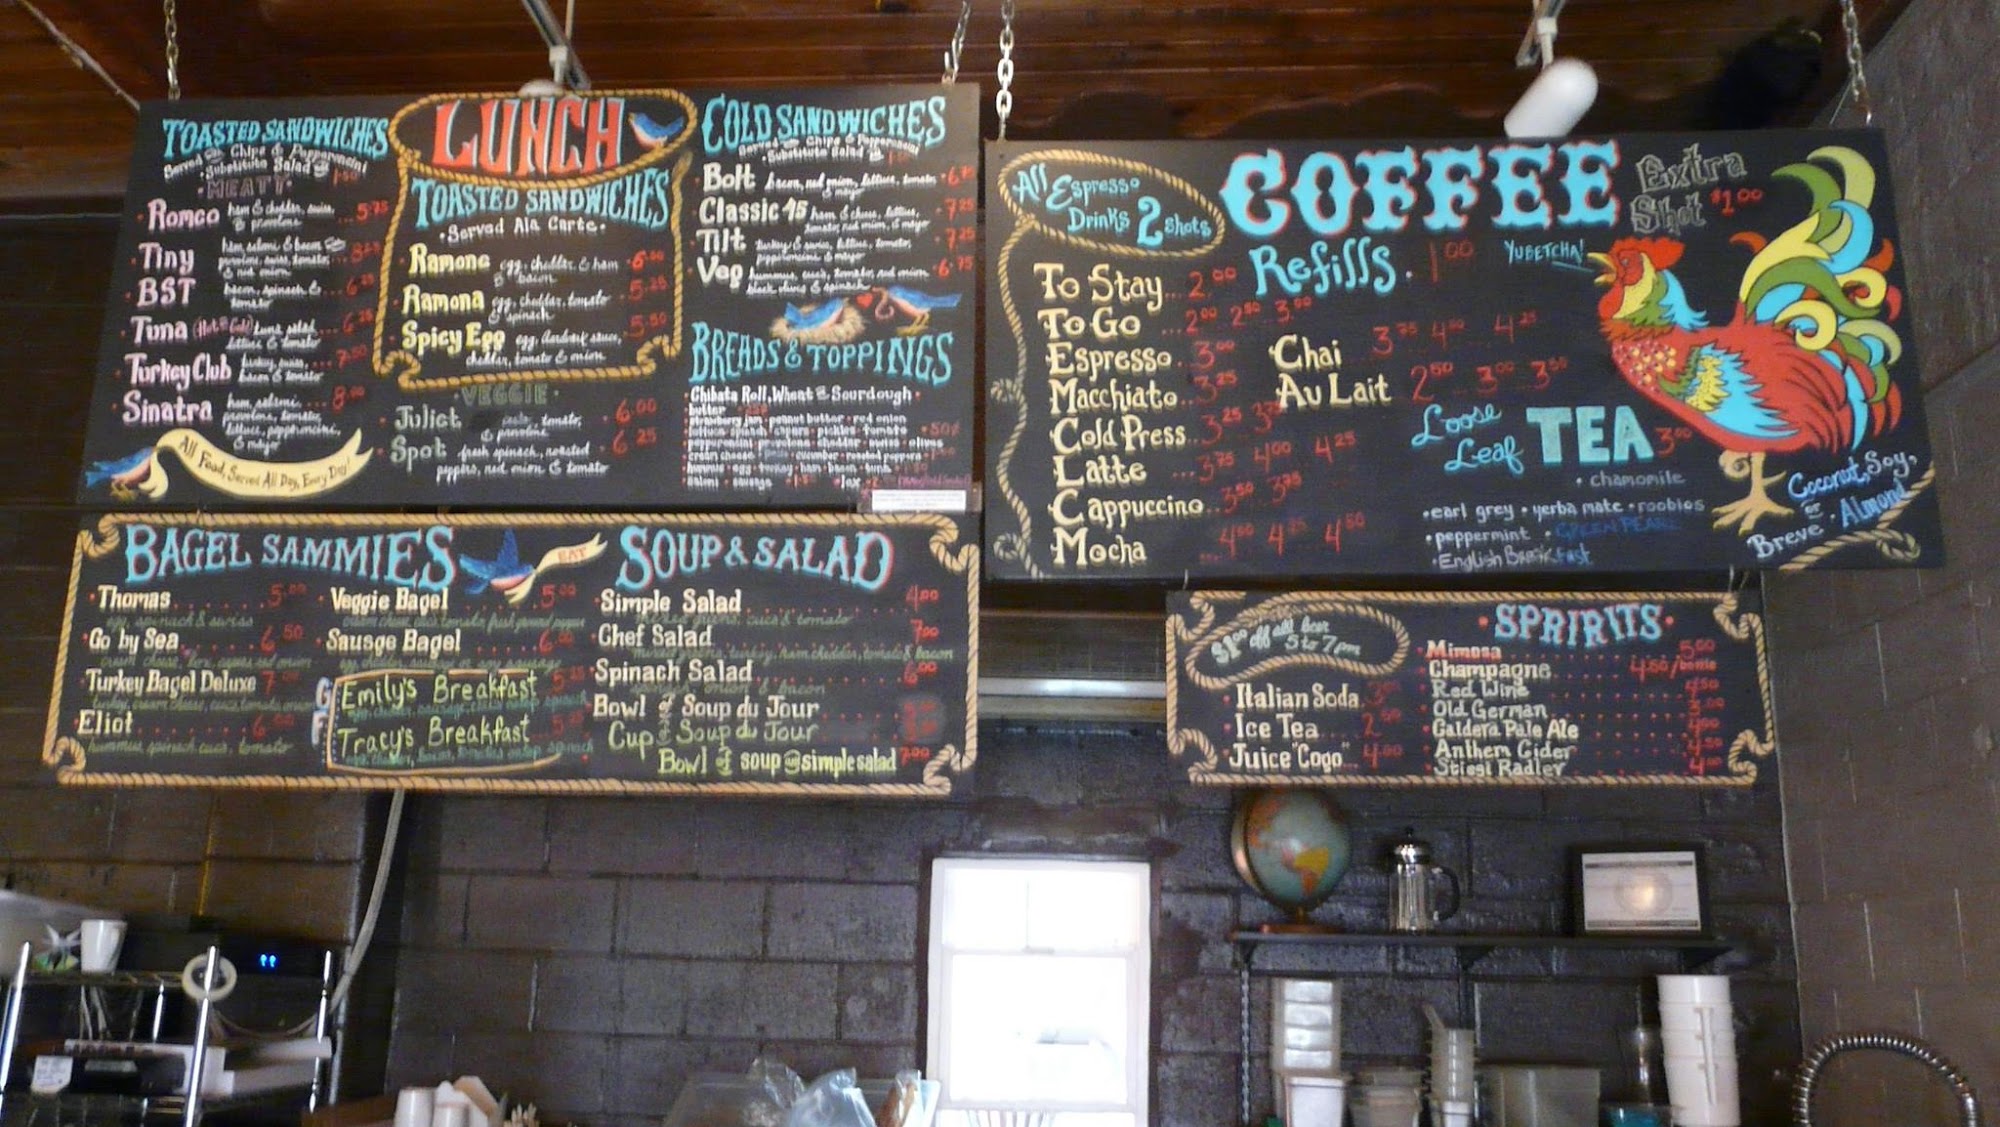 LUNCH
TOASTED SANDWICHES
Served Chips & Pepperoncini
Substitute Salad 1.50
MEATY
Romeo ham & cheddar, swiss, 5.75
& provolone
Tiny ham, salami & bacon
provolone, swiss, tomato,
& red onion
BST bacon, spinach & 6.25
tomato
Tuna (Hot or Cold) tuna salad 6.25
lettuce & tomato
Turkey Club turkey, swiss, 7.50
bacon & tomato
Sinatra ham, salami, 8.00
provolone, tomato,
lettuce, pepperoncini,
& mayo
All Food, Served All Day, Every Day!
TOASTED SANDWICHES
Served Ala Carte
Ramone egg, cheddar & ham 6.00
& bacon
Ramona egg, cheddar, tomato 5.25
& spinach
Spicy Egg egg, Aardvark sauce, 5.50
cheddar, tomato & onion
VEGGIE
Juliet pesto, tomato, 6.00
& provolone
Spot fresh spinach, roasted 6.25
peppers, red onion & tomato
COLD SANDWICHES
Served Chips & Pepperoncini
Substitute Salad
Bolt bacon, red onion, lettuce, tomato 6.75
& mayo
Classic 45 ham & cheese, lettuce, 7.25
tomato, red onion, & mayo
Tilt turkey & swiss, lettuce, tomato, 7.25
pepperoncini & mayo
Veg hummus, cuc's, tomato, red onion 6.75
black olives & spinach
BREADS & TOPPINGS
Chibata Roll, Wheat or Sourdough
butter
strawberry jam peanut butter red onion
lettuce spinach capers pickles tomato 50¢
pepperoncini provolone cheddar swiss olives
cream cheese cucumber roasted peppers
hummus egg turkey ham bacon tuna
salami sausage lox
BAGEL SAMMIES
EAT
Thomas 5.00
egg, spinach & swiss
Go by Sea 6.50
cream cheese, lox, capers, red onion
Turkey Bagel Deluxe
turkey, cream cheese, cucs, tomato, onion
Eliot
hummus, spinach, cucs, tomato
Veggie Bagel 5.00
cream cheese, cucs, tomato,
Sausge Bagel
egg, cheddar, sausage
Emily's Breakfast 5.25
Tracy's Breakfast 5.25
SOUP & SALAD
Simple Salad 4.00
mixed greens, cucs & tomato
Chef Salad 7.00
mixed greens, turkey, ham, cheddar, tomato & bacon
Spinach Salad 6.00
spinach, onion & bacon
Bowl of Soup du Jour
Cup of Soup du Jour
Bowl of soup simple salad 7.00
All Espresso
Drinks 2 shots
COFFEE
Extra
Shot $1.00
Refills 1.00
YUBETCHA!
To Stay 2.00
To Go 2.00 2.50 3.00
Espresso 3.00
Macchiato 3.25
Cold Press 3.25 3.75
Latte 3.75 4.00 4.25
Cappuccino 3.50 3.75
Mocha 4.00 4.25 4.50
Chai 3.75 4.00 4.25
Au Lait 2.50 3.00 3.50
Loose
Leaf TEA 3.00
chamomile
earl grey yerba mate rooibios
peppermint GREEN PEARL
English Breakfast
Coconut, Soy,
or Almond
Breve
$1.00 off all beer
5 to 7pm
Italian Soda
Ice Tea
Juice "Cogo" 4.00
SPRIRITS
Mimosa 5.00
Champagne 4.50/bottle
Red Wine
Old German
Caldera Pale Ale
Anthem Cider
Stiegl Radler